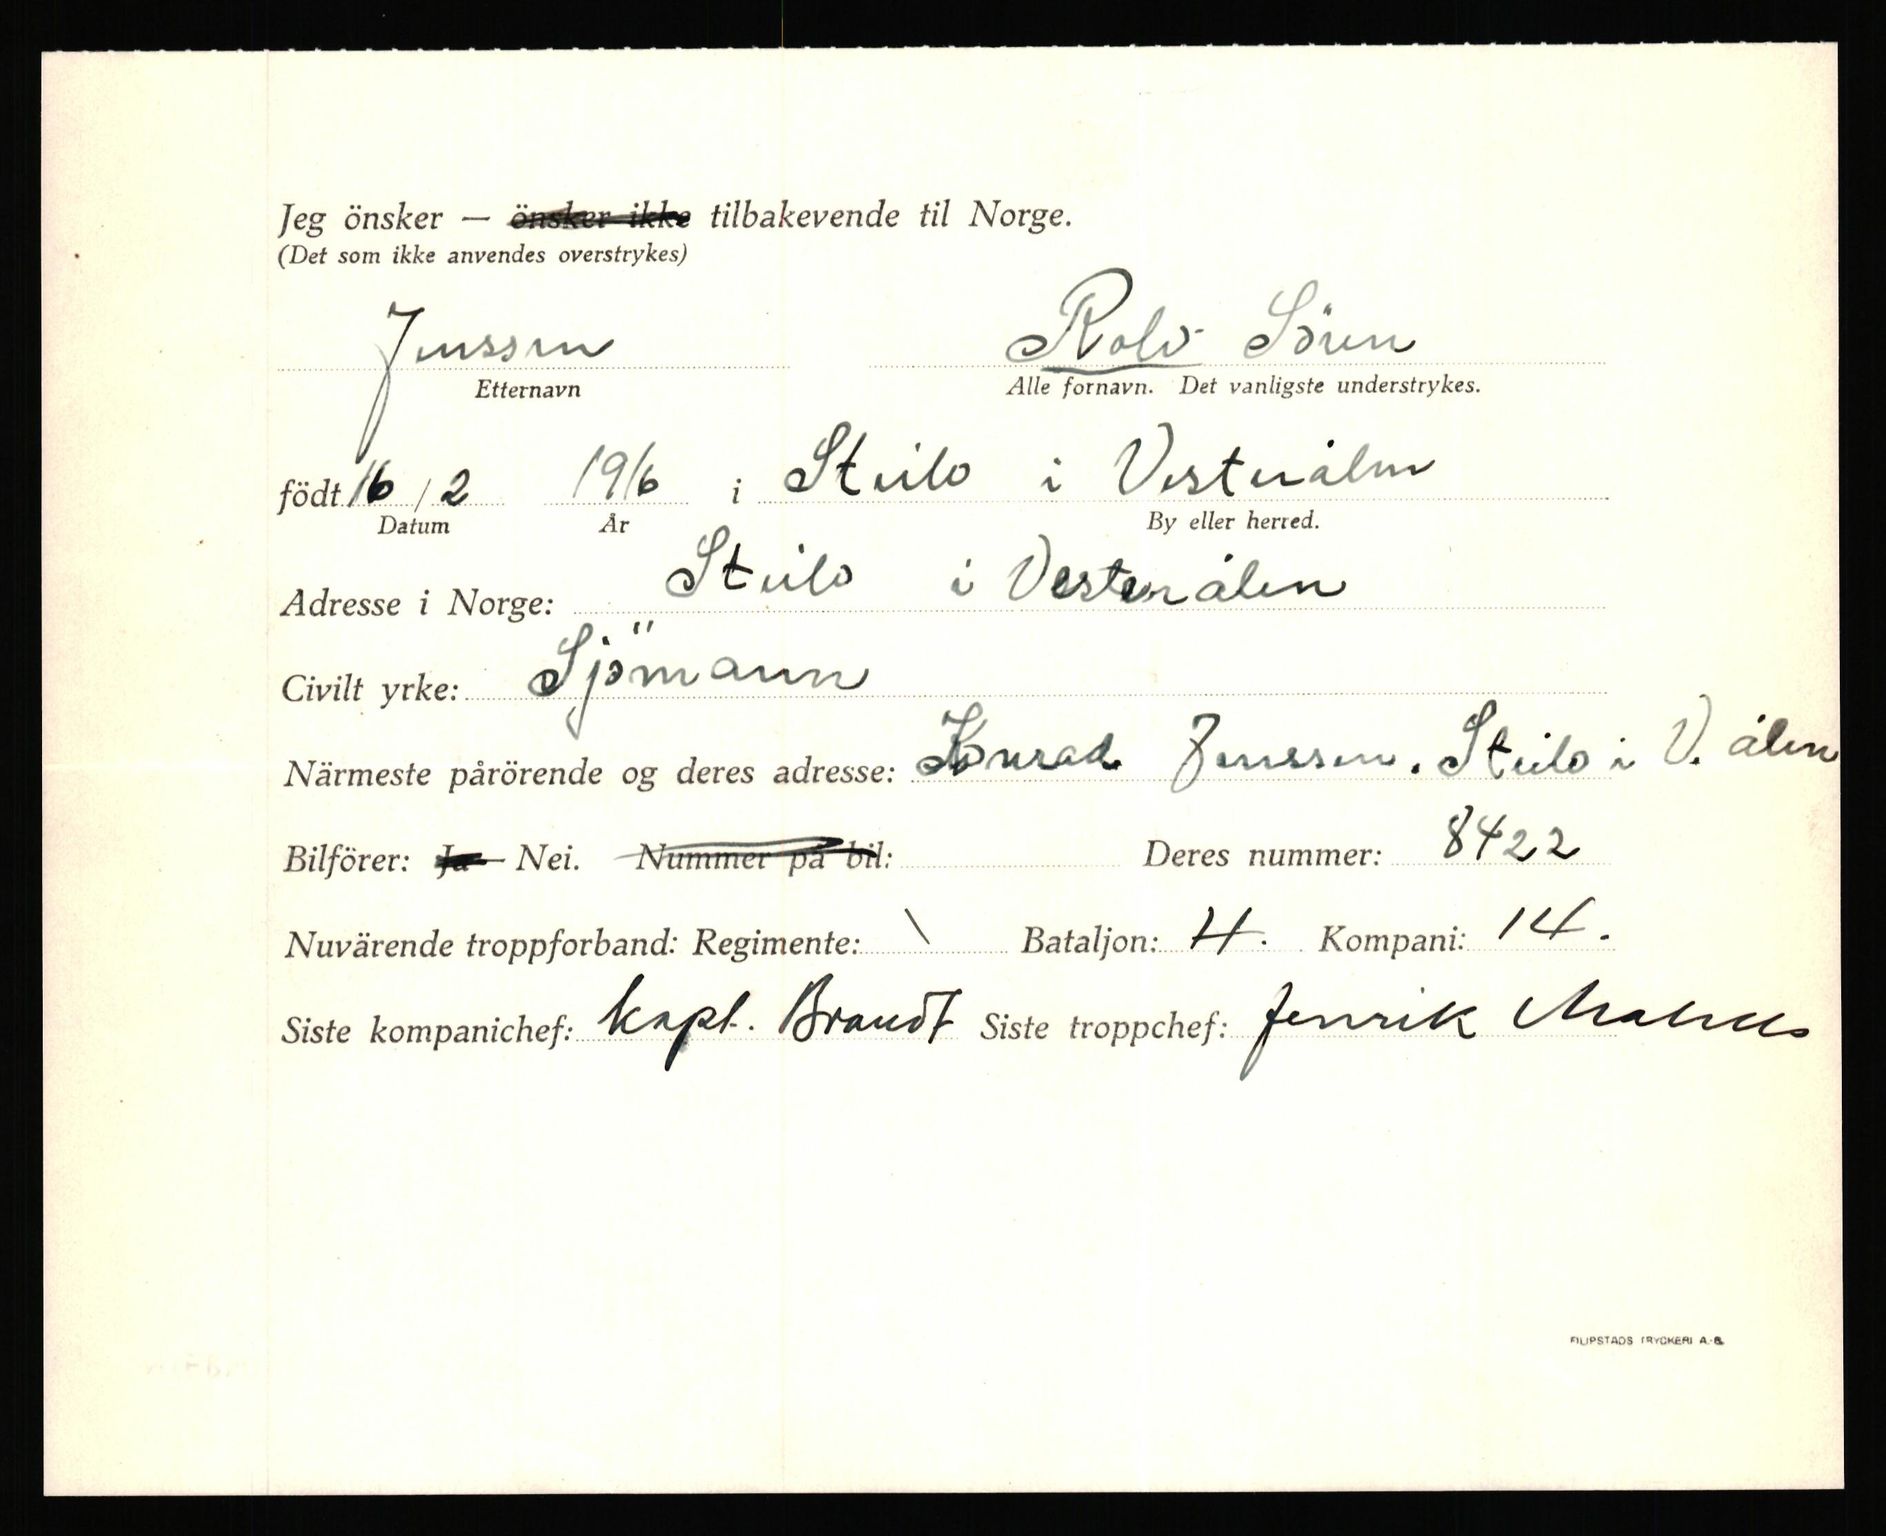 Jeg önsker — önsker ikke tilbakevende til Norge.
(Det som ikke anvendes overstrykes)
Jenssen Rolv Sören
Etternavn Alle fornavn. Det vanligste understrykes.
födt 16/2 1916 i Steilo i Vesterålen
Datum År By eller herred.
Adresse i Norge: Steilo i Vesterålen
Civilt yrke: Sjömann
Närmeste pårörende og deres adresse: Konrad Jenssen. Steilo i V. ålen
Bilförer: Ja Nei. Nummer på bil: Deres nummer: 8422
Nuvärende troppforband: Regimente: \ Bataljon: 4. Kompani: 14.
Siste kompanichef: kapt. Brandt Siste troppchef: fenrik
FILIPSTADS TRYCKERI A.-B.